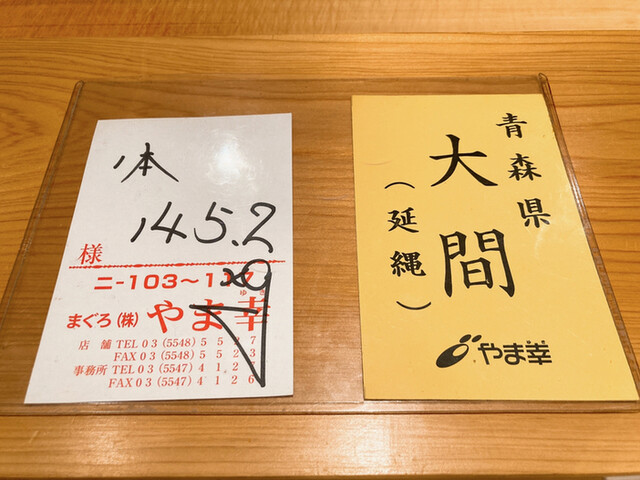 1本
145.2
様
ニ-103〜117
まぐろ(株)やま幸
ゆき
店舗 TEL 03 (5548) 5 5 2 7
FAX 03 (5548) 5 5 2 3
事務所 TEL 03 (5547) 4 1
FAX 03 (5547) 4 1 2 6
青森県
大間
(延縄)
やま幸